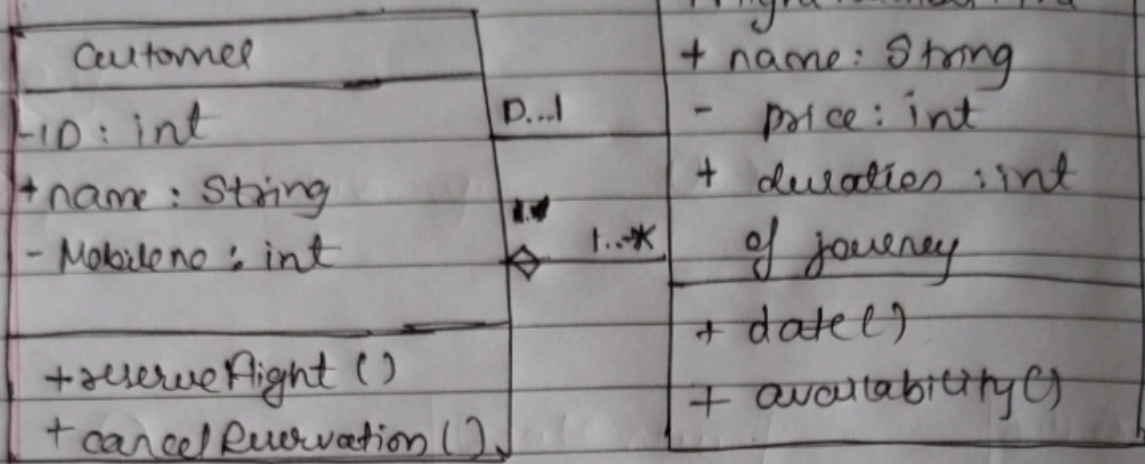 Customer
-ID: int
+name: String
- Mobileno: int
+reserveflight ()
+cancelReservation ()
0...1
1..*
+ name: String
- price: int
+ duration: int
of journey
+ date()
+ availability()